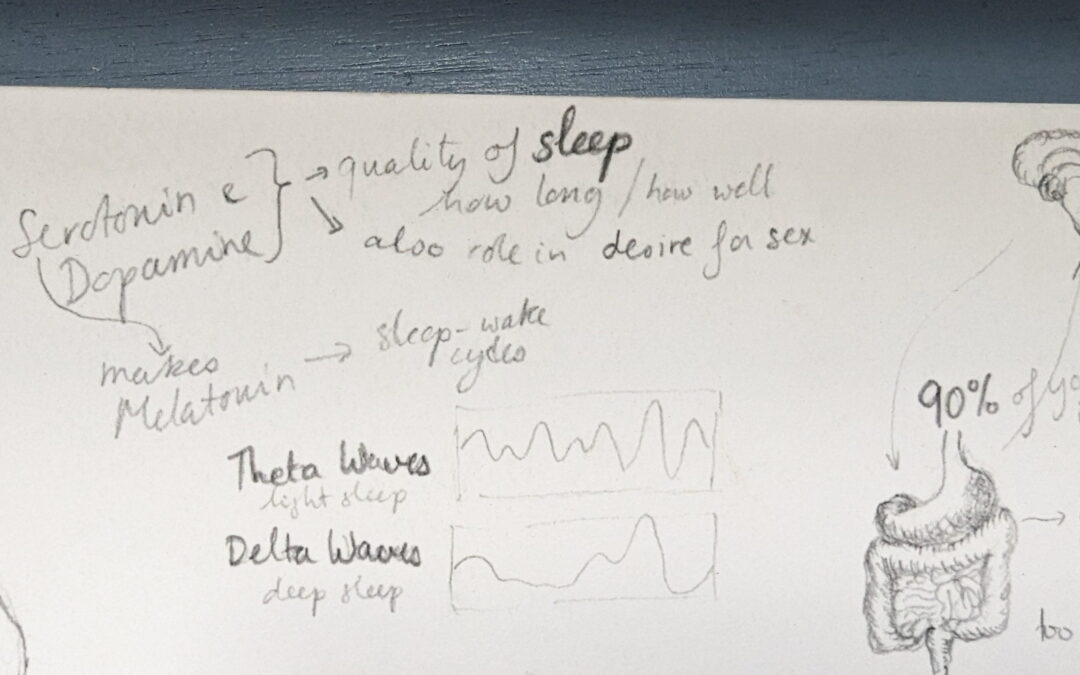 Serotonin e
Dopamine
→ quality of sleep
how long / how well
also role in desire for sex
makes
Melatonin → sleep-wake
cycles
Theta Waves
light sleep
Delta Waves
deep sleep
90% of
too